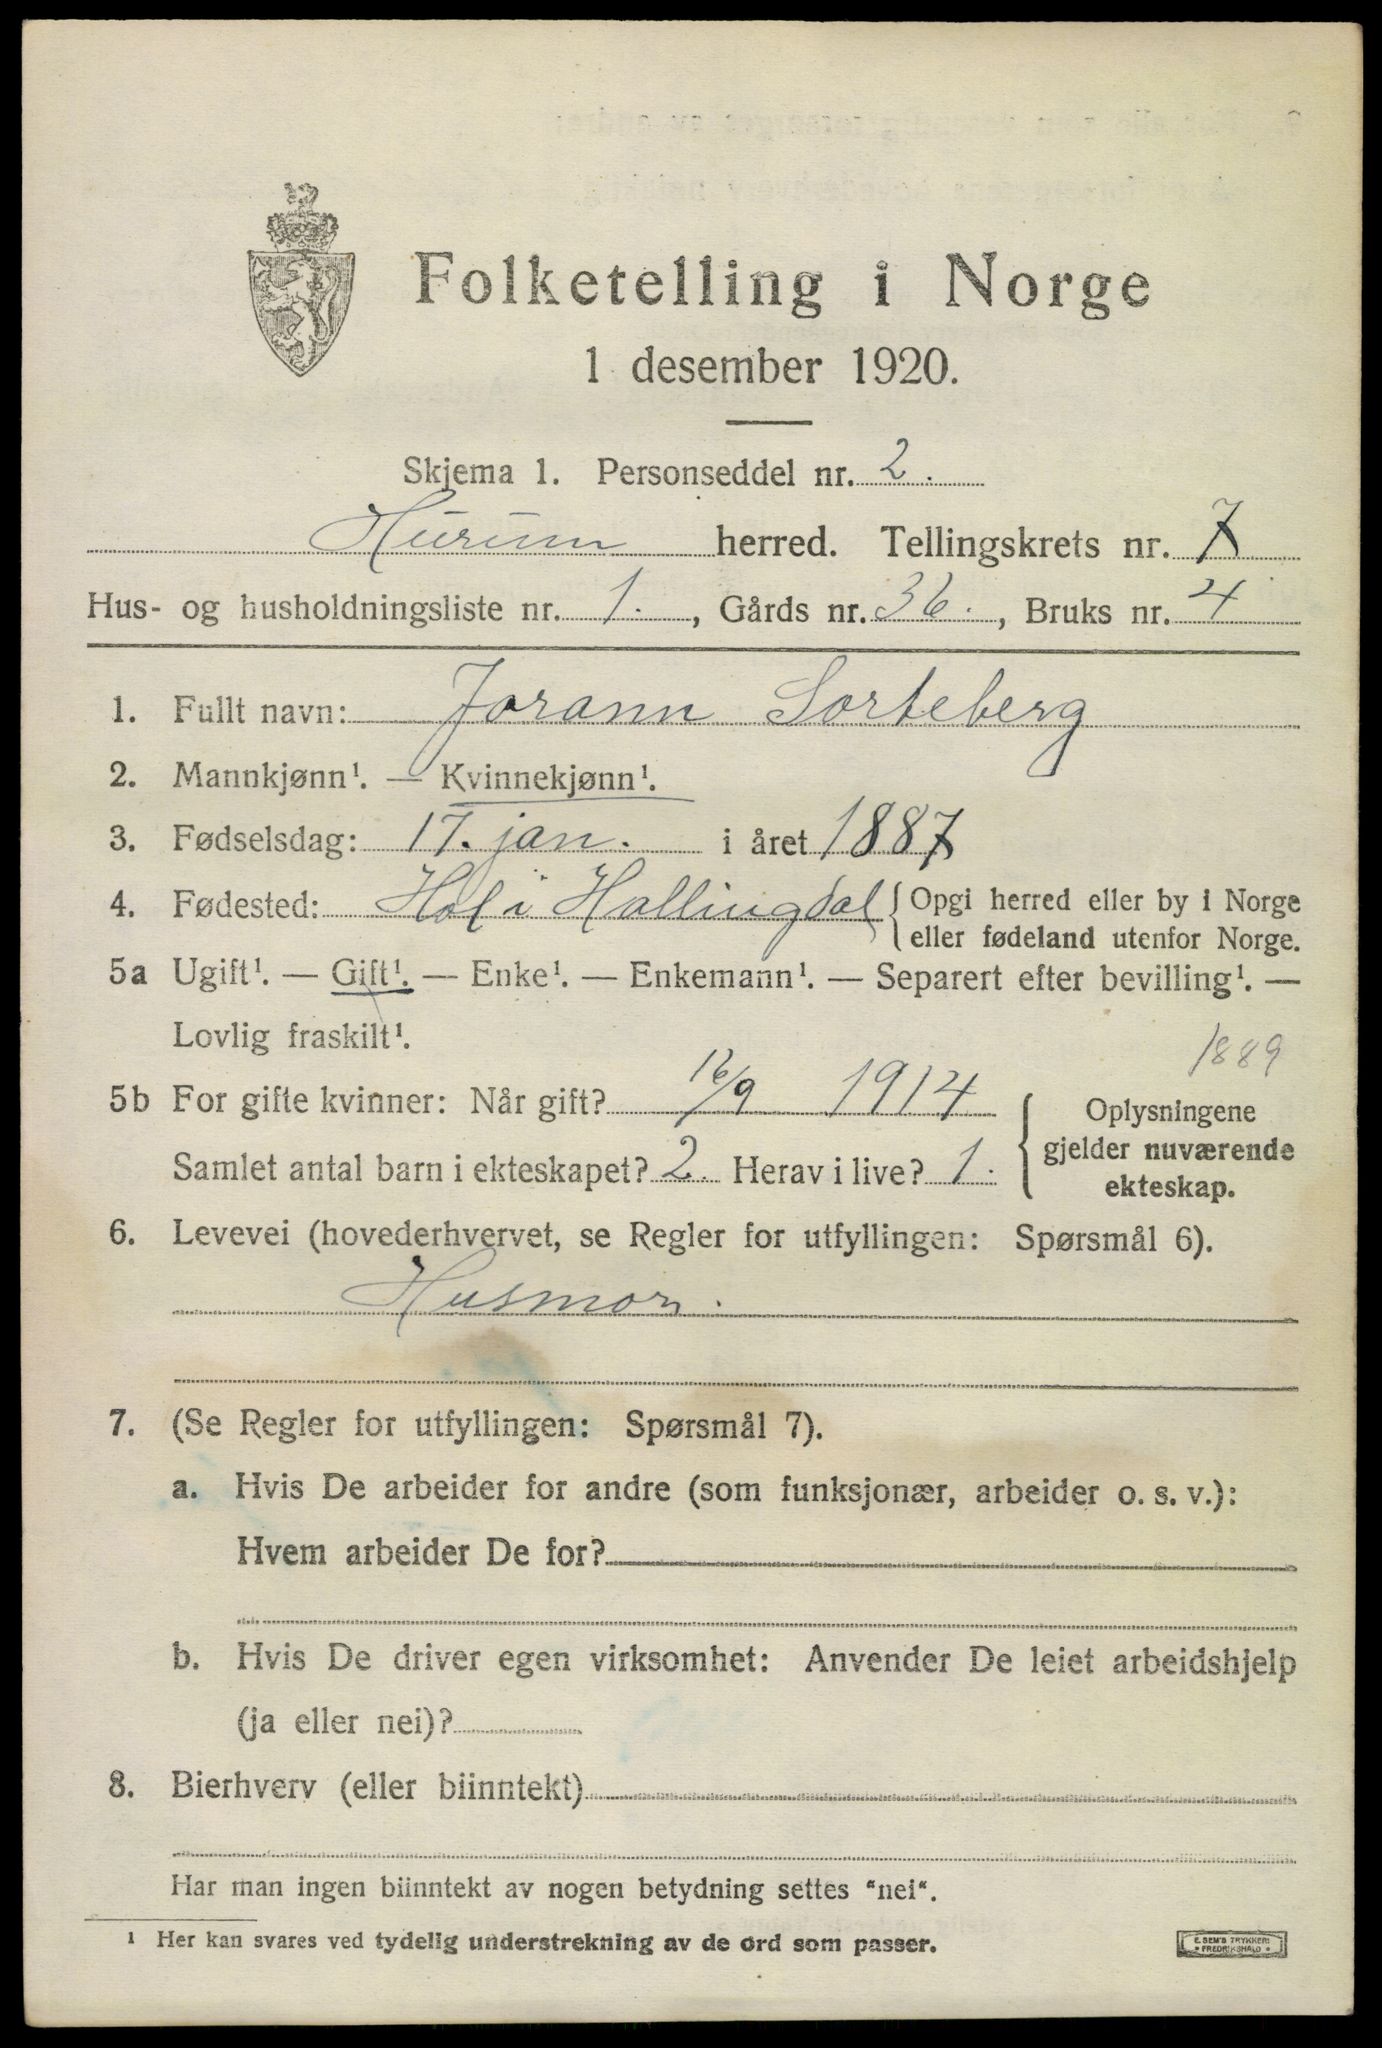 Folketelling i Norge
1 desember 1920.
Skjema 1. Personseddel nr. 2.
Hurum herred. Tellingskrets nr. 7
Hus- og husholdningsliste nr. 1., Gårds nr. 36., Bruks nr. 4
1. Fullt navn: Jorann Sorteberg
2. Mannkjønn¹. — Kvinnekjønn¹.
3. Fødselsdag: 17. jan. i året 1887
4. Fødested: Hol i Hallingdal { Opgi herred eller by i Norge
eller fødeland utenfor Norge.
5a Ugift¹. — Gift¹. — Enke¹. — Enkemann¹. — Separert efter bevilling¹. —
Lovlig fraskilt¹.
1889
5b For gifte kvinner: Når gift? 16/9 1914
Samlet antal barn i ekteskapet? 2. Herav i live? 1.
{ Oplysningene
gjelder nuværende
ekteskap.
6. Levevei (hovederhvervet, se Regler for utfyllingen: Spørsmål 6).
Husmor.
7. (Se Regler for utfyllingen: Spørsmål 7).
a. Hvis De arbeider for andre (som funksjonær, arbeider o. s. v.):
Hvem arbeider De for?
b. Hvis De driver egen virksomhet: Anvender De leiet arbeidshjelp
(ja eller nei)?
8. Bierhverv (eller biinntekt)
Har man ingen biinntekt av nogen betydning settes "nei".
¹ Her kan svares ved tydelig understrekning av de ord som passer.
E. SEM'S TRYKKERI
FREDRIKSHALD